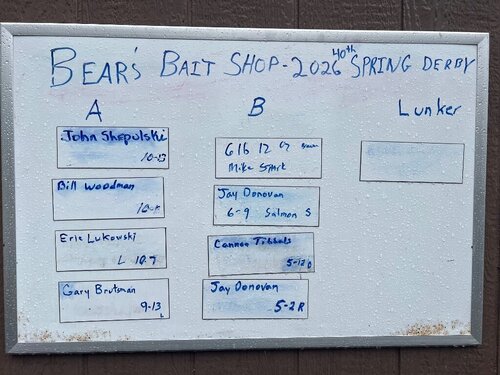 BEAR'S BAIT SHOP - 2026 40th SPRING DERBY
A
B
Lunker
John Shepulski
10-13
Bill Woodman
Eric Lukowski
L 10.7
Gary Brutsman
9-13 L
6lb 12 oz Brown
Mike Spark
Jay Donovan
6-9 Salmon S
Cannon Tibbals
5-12
Jay Donovan
5-2 R